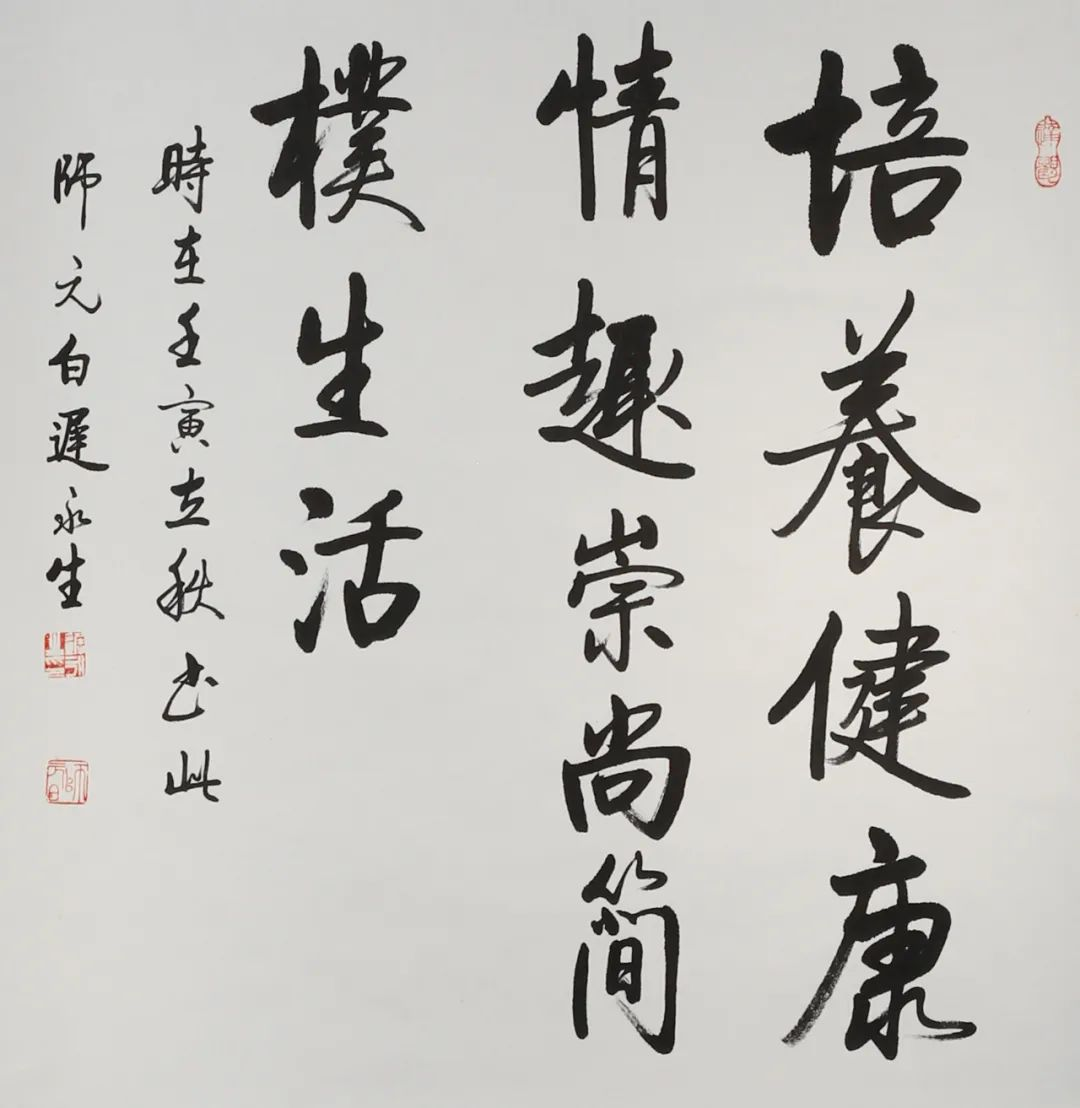 培養健康
情趣崇尚簡
樸生活
時在壬寅立秋书此
師元白遲永生